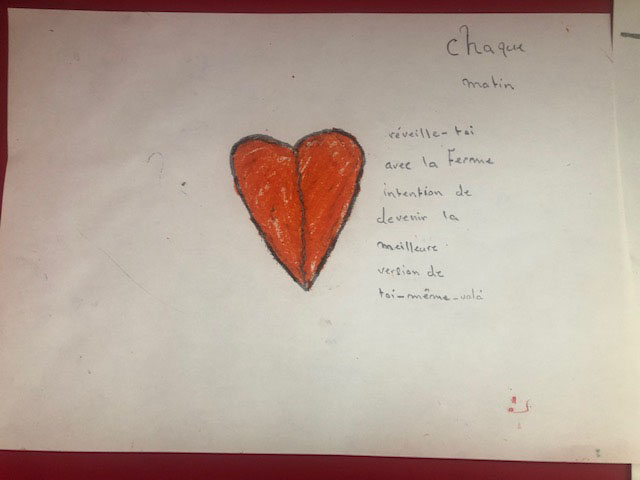 chaque
matin
réveille-toi
avec la Ferme
intention de
devenir la
meilleure
version de
toi-même-voilà